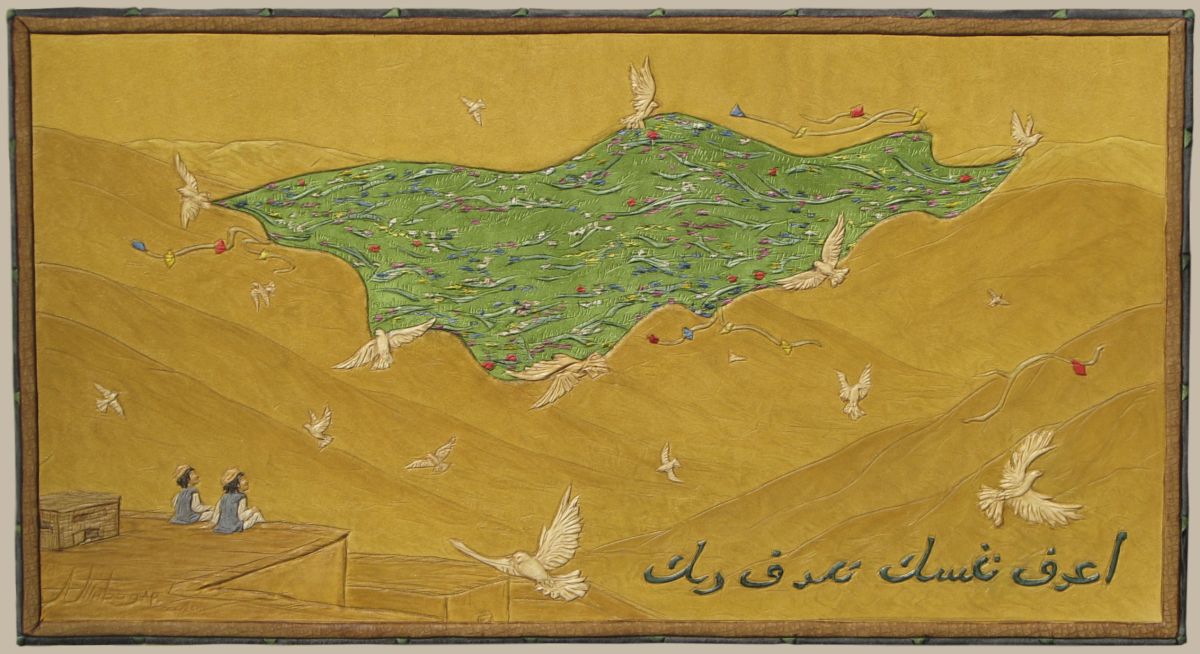 اعرف نفسك تعرف ربك